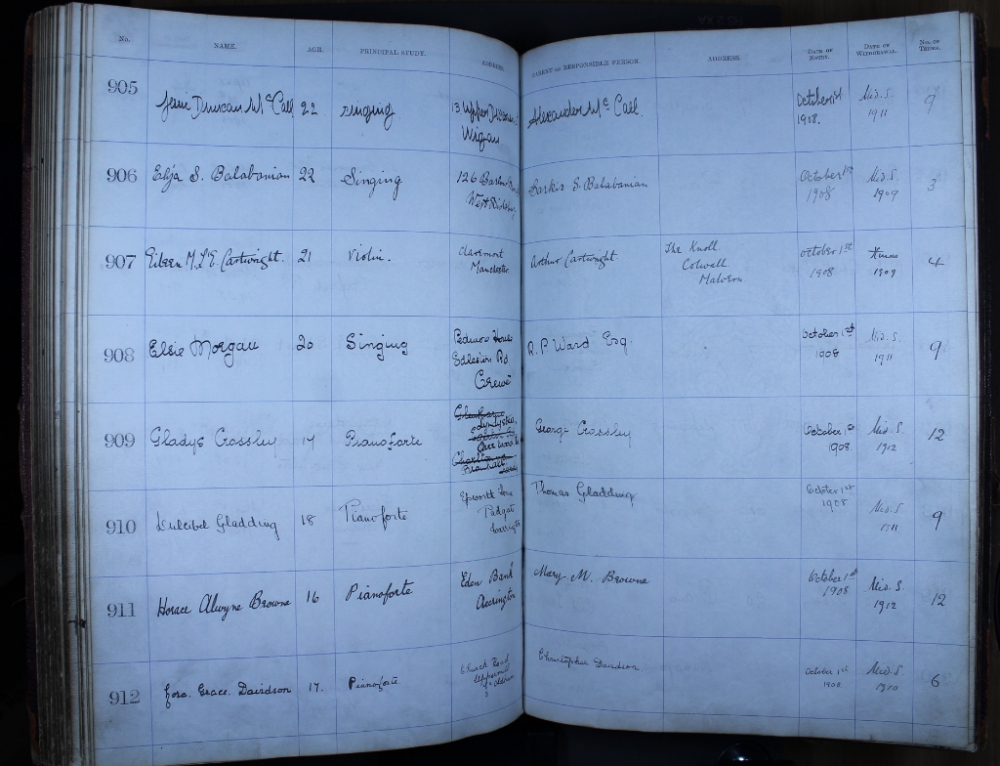 No. NAME. AGE. PRINCIPAL STUDY. ADDRESS. PARENT OR RESPONSIBLE PERSON. ADDRESS. DATE OF ENTRY. DATE OF WITHDRAWAL. No. OF TERMS.
905 Duncan McCall 22 Singing 13 Upper Alexander McCall October 1st Mid. S. 9
Wigan 1908. 1911
906 S. Balabanian 22 Singing 126 Sarkis S. Balabanian October 1st Mid. S. 3
1908 1909
907 Eileen M. L. E. Cartwright. 21 Violin. Claremont Arthur Cartwright The Knoll October 1st Xmas 4
Manchester Colwall 1908 1909
Malvern
908 Elsie Morgan 20 Singing House R. P. Ward Esq. October 1st Mid. S. 9
Rd 1908 1911
Crewe
909 Gladys Crossley 17 Pianoforte George Crossley October 1st Mid. S. 12
1908. 1912
910 Gladding 18 Pianoforte Epworth Thomas Gladding October 1st Mid. S. 9
Padgate 1908 1911
Warrington
911 Horace Alwyne Browne 16 Pianoforte Eden Bank Mary M. Browne October 1st Mid. S. 12
Accrington 1908 1912
912 Grace Davidson 17. Pianoforte Church Road Christopher Davidson October 1st Mid. S. 6
Uppermill 1908 1910